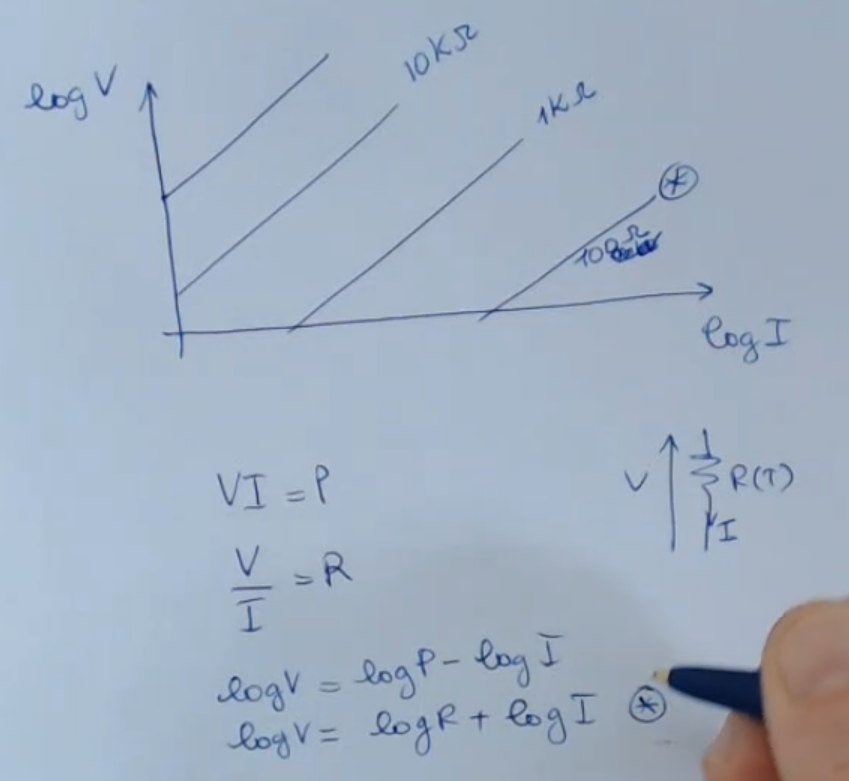 log V
10KΩ
1KΩ
*
100Ω
log I
VI = P
V R(T)
I
V/I = R
logV = logP - log I
logV = logR + log I *